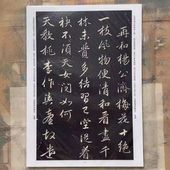 再和楊公濟梅花十絕
一枝風物便清和看盡千
林未覺多結習已空從著
袂不須天女問如何
天教桃李作輿臺故遣